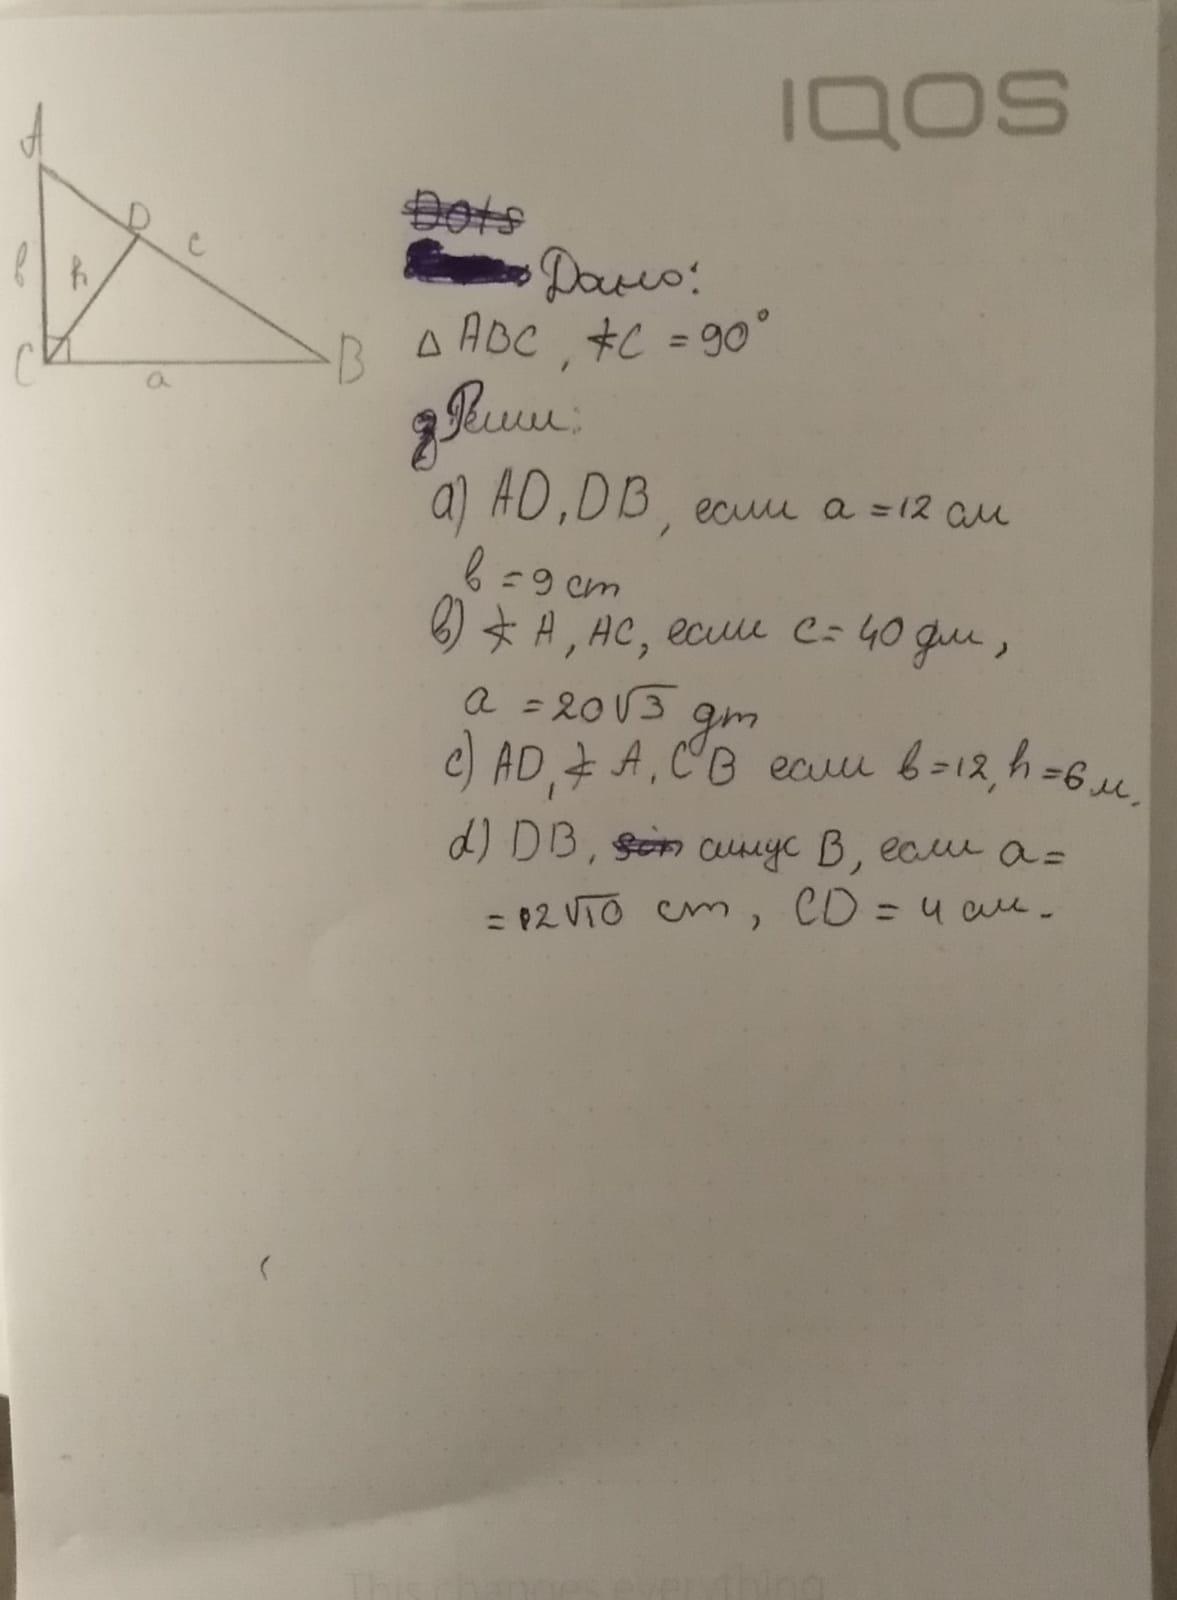 IQOS
A
D
c
b
h
C
a
B
Dots
Дано:
△ ABC, ∡C = 90°
Реши:
a) AD, DB, если a = 12 см
b = 9 cm
b) ∡ A, AC, если c = 40 дм,
a = 20√3 dm
c) AD, ∡ A, CB если b = 12, h = 6 м.
d) DB, sin синус B, если a =
= 2√10 cm, CD = 4 см.
This changes everything